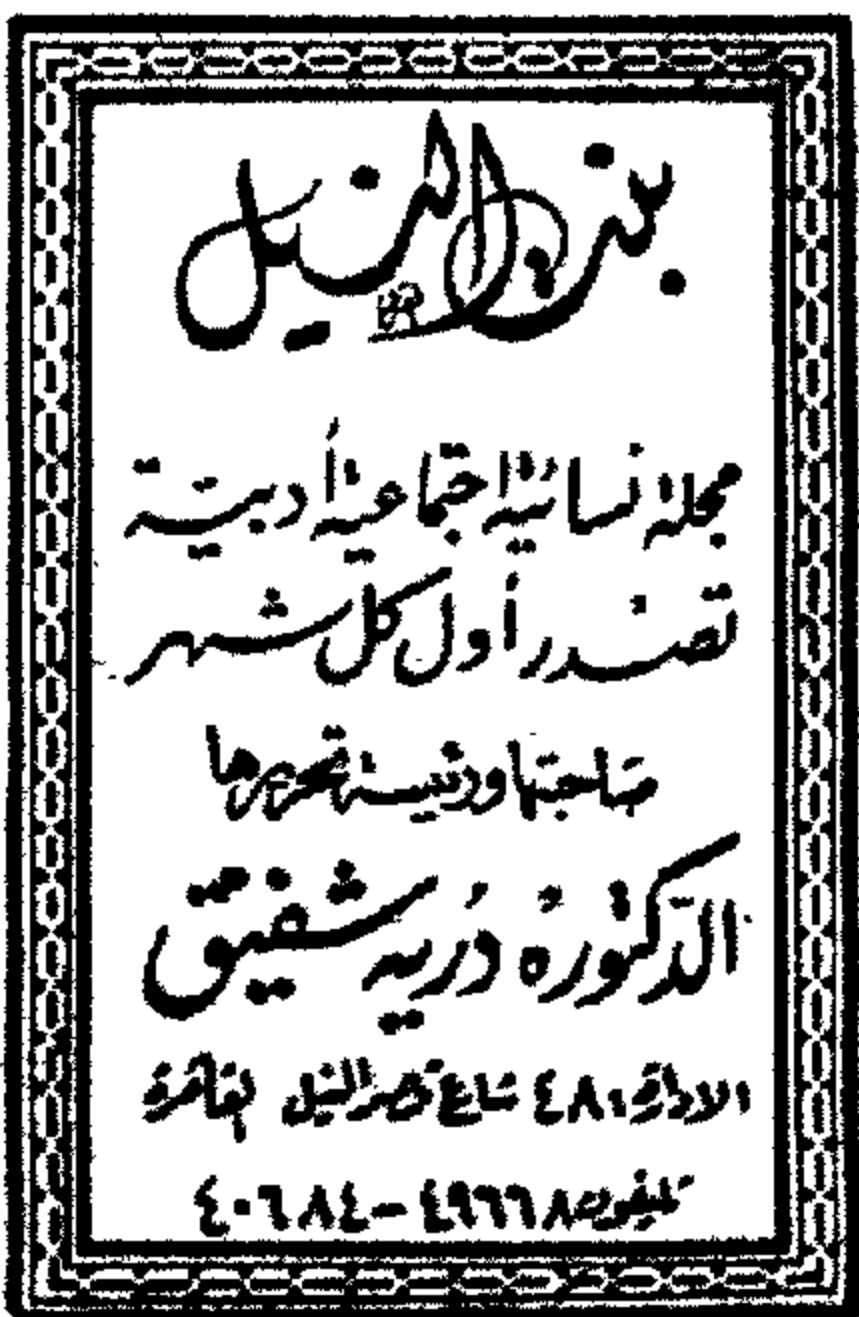 بنت النيل
مجلة نسائية اجتماعية أدبية
تصدر أول كل شهر
صاحبتها ورئيسة تحريرها
الدكتورة درية شفيق
الادارة ٤٨ شارع قصر النيل القاهرة
تليفون ٤٩٦٦٨ - ٤٠٦٨٤